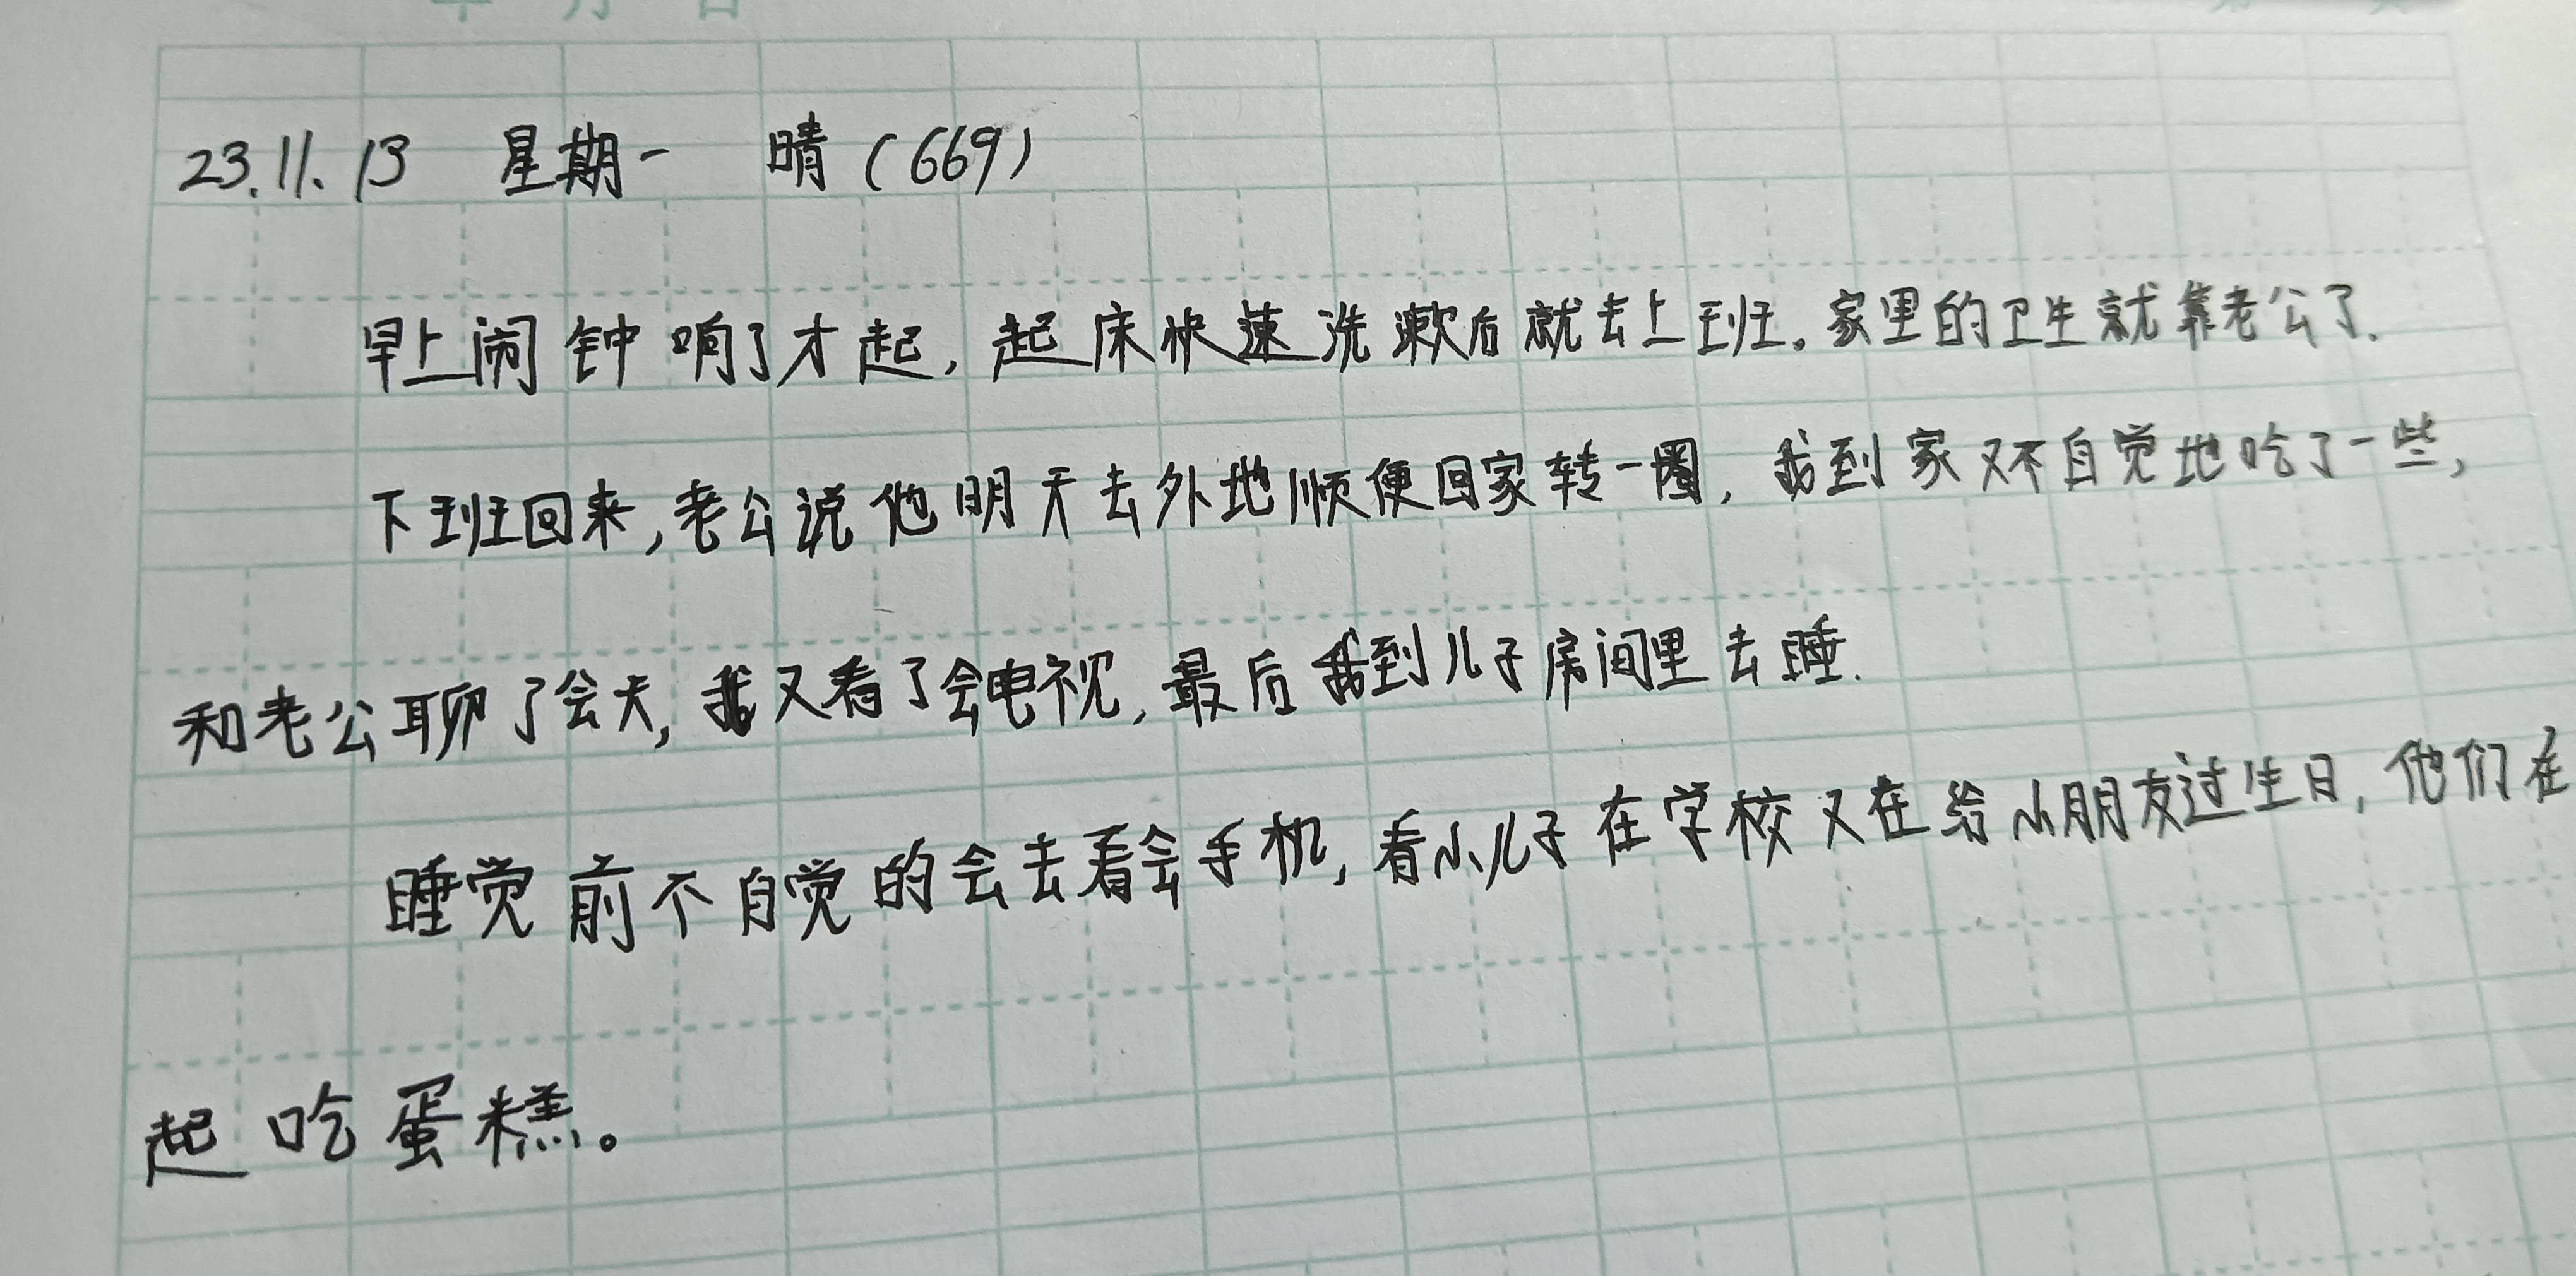 年 月 日
23.11.13 星期一 晴(669)
早上闹钟响了才起,起床快速洗漱后就去上班。家里的卫生就靠老公了.
下班回来,老公说他明天去外地顺便回家转一圈,我到家又不自觉地吃了一些,
和老公聊了会天,我又看了会电视,最后我到儿子房间里去睡.
睡觉前不自觉的会去看会手机,看小儿子在学校又在给小朋友过生日,他们在
起吃蛋糕。